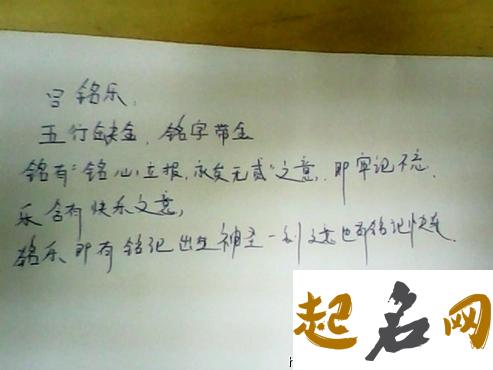 吕铭乐,
五行缺金, 铭字带金
铭有"铭心立报, 永矢无贰"之意, 即牢记不忘.
乐含有快乐之意,
铭乐即有铭记出生神圣一刻之意也有铭记快乐.
起名网
h